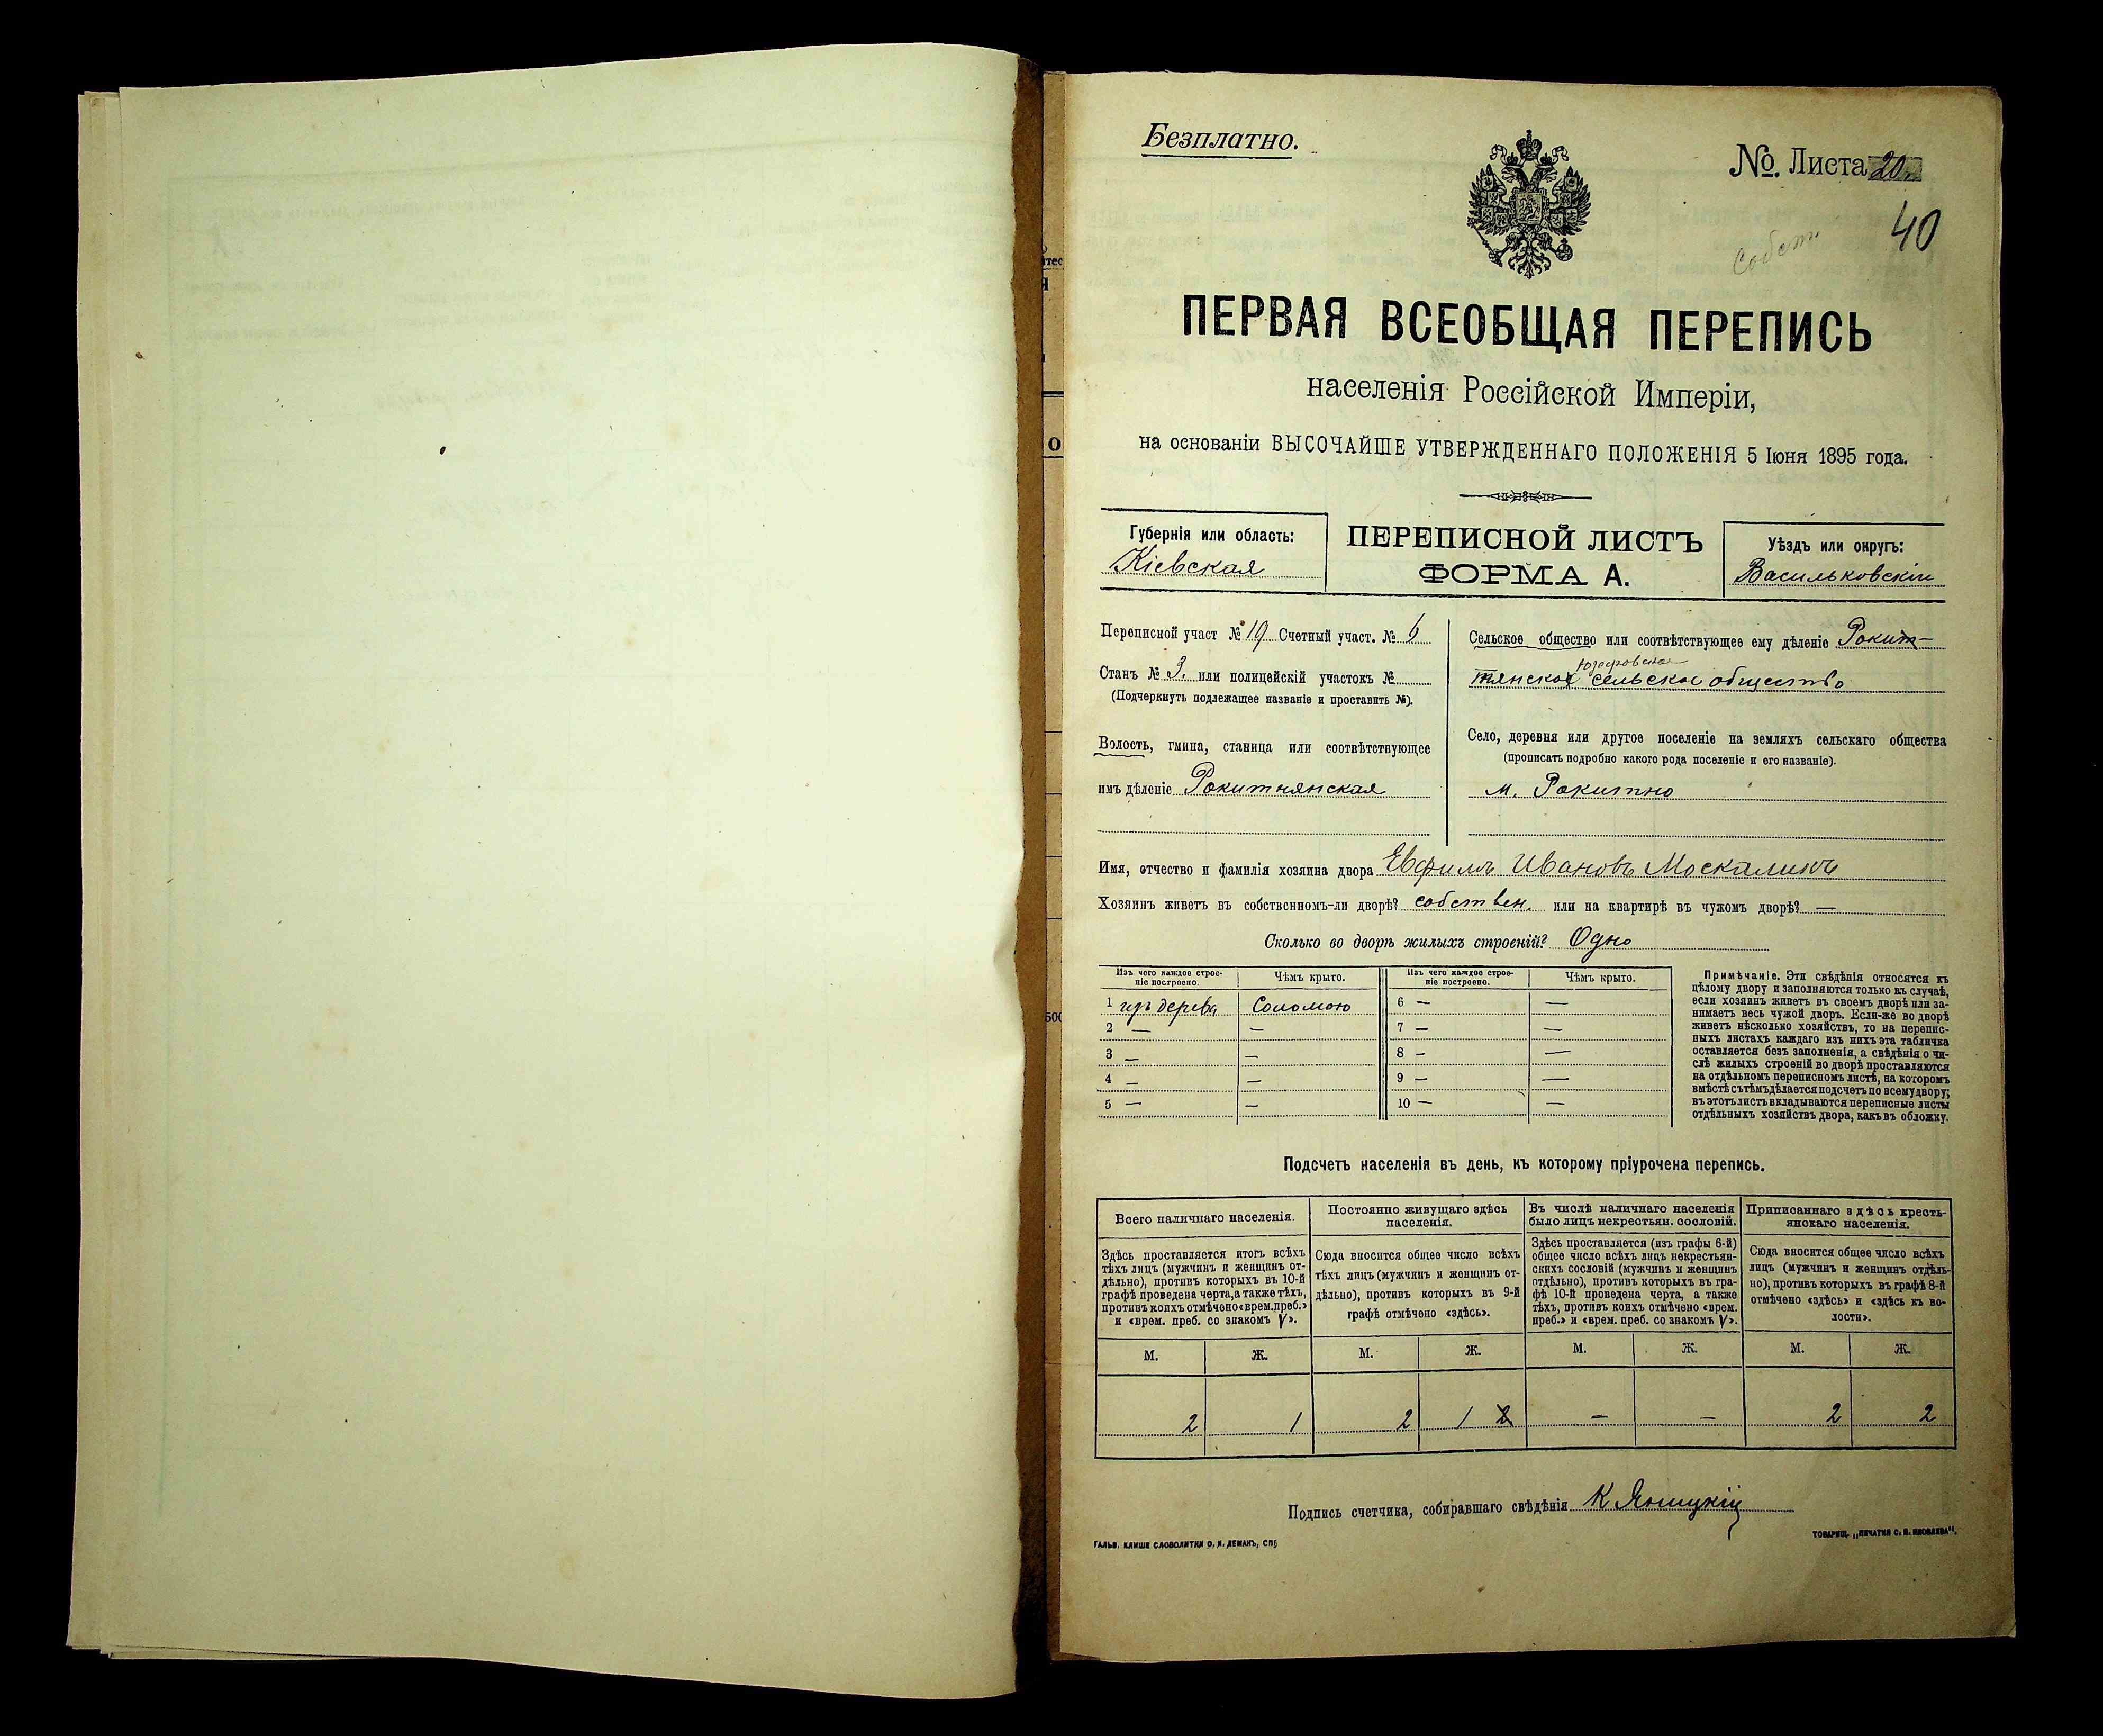 Безплатно.
№. Листа 20.
40
собств.
ПЕРВАЯ ВСЕОБЩАЯ ПЕРЕПИСЬ
населенія Россійской Имперіи,
на основаніи ВЫСОЧАЙШЕ УТВЕРЖДЕННАГО ПОЛОЖЕНІЯ 5 Іюня 1895 года.
Губернія или область:
Кіевская
ПЕРЕПИСНОЙ ЛИСТЪ
ФОРМА А.
Уѣздъ или округъ:
Васильковскій
Переписной участ № 19 Счетный участ. № 6
Станъ № 3. или полицейскій участокъ №
(Подчеркнуть подлежащее названіе и проставить №).
Волость, гмина, станица или соотвѣтствующее
имъ дѣленіе Рокитнянская
Сельское общество или соотвѣтствующее ему дѣленіе Рокит-
Юзефовское
тянское сельское общество
Село, деревня или другое поселеніе на земляхъ сельскаго общества
(прописать подробно какого рода поселеніе и его названіе).
м. Рокитно
Имя, отчество и фамилія хозяина двора Евфимъ Ивановъ Москалюкъ
Хозяинъ живетъ въ собственномъ-ли дворѣ? собствен. или на квартирѣ въ чужомъ дворѣ? —
Сколько во дворѣ жилыхъ строеній? Одно
Изъ чего каждое строе-
ніе построено.
Чѣмъ крыто.
Изъ чего каждое строе-
ніе построено.
Чѣмъ крыто.
1 изъ дерева Соломою 6 — —
2 — — 7 — —
3 — — 8 — —
4 — — 9 — —
5 — — 10 — —
Примѣчаніе. Эти свѣдѣнія относятся къ
цѣлому двору и заполняются только въ случаѣ,
если хозяинъ живетъ въ своемъ дворѣ или за-
нимаетъ весь чужой дворъ. Если-же во дворѣ
живетъ нѣсколько хозяйствъ, то на перепис-
ныхъ листахъ каждаго изъ нихъ эта табличка
оставляется безъ заполненія, а свѣдѣнія о чи-
слѣ жилыхъ строеній во дворѣ проставляются
на отдѣльномъ переписномъ листѣ, на которомъ
вмѣстѣ съ тѣмъ дѣлается подсчетъ по всему двору;
въ этотъ листъ вкладываются переписные листы
отдѣльныхъ хозяйствъ двора, какъ въ обложку.
Подсчетъ населенія въ день, къ которому пріурочена перепись.
Всего наличнаго населенія.
Здѣсь проставляется итогъ всѣхъ
тѣхъ лицъ (мужчинъ и женщинъ от-
дѣльно), противъ которыхъ въ 10-й
графѣ проведена черта, а также тѣхъ,
противъ коихъ отмѣчено «врем. преб.»
и «врем. преб. со знакомъ V».
Постоянно живущаго здѣсь
населенія.
Сюда вносится общее число всѣхъ
тѣхъ лицъ (мужчинъ и женщинъ от-
дѣльно), противъ которыхъ въ 9-й
графѣ отмѣчено «здѣсь».
Въ числѣ наличнаго населенія
было лицъ некрестьян. сословій.
Здѣсь проставляется (изъ графы 6-й)
общее число всѣхъ лицъ некрестьян-
скихъ сословій (мужчинъ и женщинъ
отдѣльно), противъ которыхъ въ гра-
фѣ 10-й проведена черта, а также
тѣхъ, противъ коихъ отмѣчено «врем.
преб.» и «врем. преб. со знакомъ V».
Приписаннаго здѣсь кресть-
янскаго населенія.
Сюда вносится общее число всѣхъ
лицъ (мужчинъ и женщинъ отдѣль-
но), противъ которыхъ въ графѣ 8-й
отмѣчено «здѣсь» и «здѣсь къ во-
лости».
М. Ж. М. Ж. М. Ж. М. Ж.
2 1 2 1 2 — — 2 2
Подпись счетчика, собиравшаго свѣдѣнія К
ГАЛЬВ. КЛИШЕ СЛОВОЛИТНИ О. И. ЛЕМАНЪ, СПБ
ТОВАРИЩ. „ПЕЧАТНЯ С. П. ЯКОВЛЕВА".